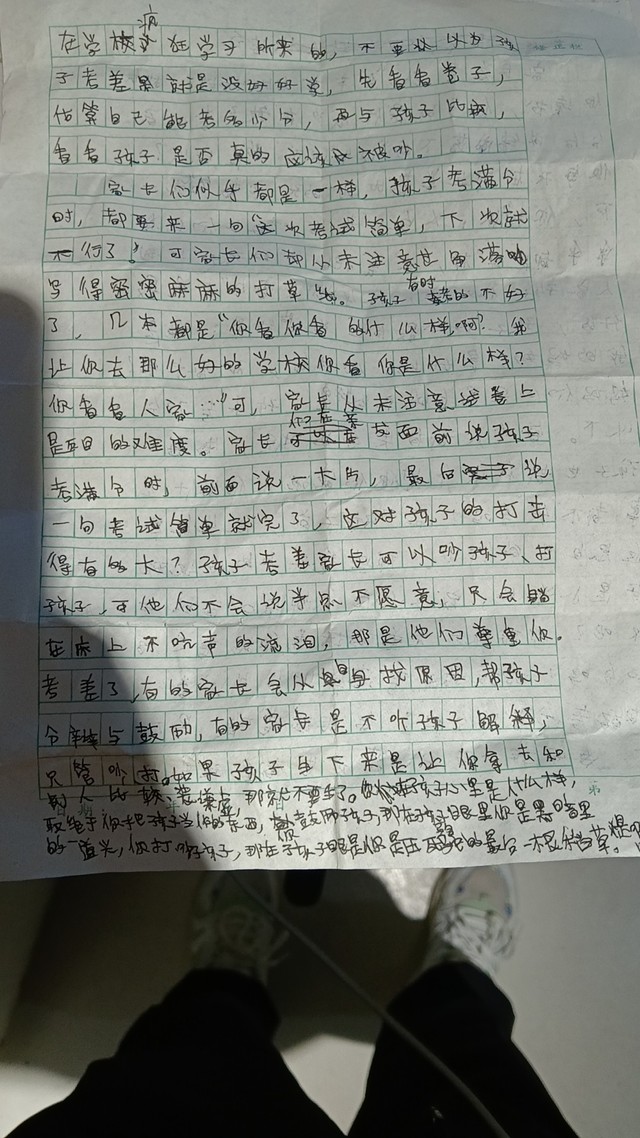 疯
在学校狂学习所来的，不要以为孩
子考差果就是没好好学，先看看卷子，
估算自己能考多少分，再与孩子比较，
看看孩子是否真的应该被吵。
家长们似乎都是一样，孩子考满分
时，都要来一句"这次考试简单，下次就
不行了！"可家长们却从未注意
写得密密麻麻的打草纸。孩子有时考的不好
了，几乎都是"你看你看的什么样啊？我
让你去那么好的学校你看你是什么样？
你看看人家……"可，家长从未注意试卷上
题目的难度。家长们在发面前说孩子
考满分时，前面说一大片，最后说
一句考试简单就完了，这对孩子的打击
得有的大？孩子考差家长可以吵孩子、打
孩子，可他们不会说半点不愿意，只会躺
在床上不吭声的流泪，那是他们尊重你。
考差了，有的家长会从自身找原因，帮孩子
分解与鼓励，有的家长是不听孩子解释，
只管吵打。如果孩子生下来是让你拿去和
别人比较、装虚，那就不要生了。孩子心里是什么样，
取决于你把孩子当什么东西，你鼓励孩子，那在孩子眼里你是黑暗里
的一道光，你打吵孩子，那在孩子眼里你是压的最后一根稻草。